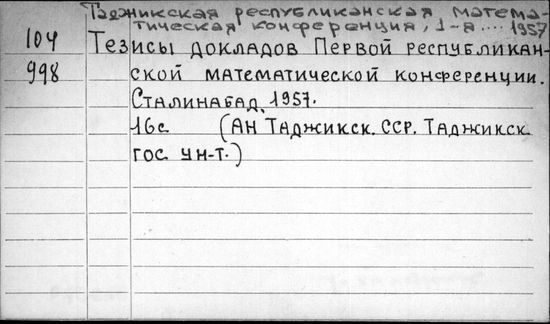 Таджикская республиканская матема-
тическая конференция, 1-я .... 1957
104 Тезисы докладов Первой республикан-
998 ской математической конференции.
Сталинабад, 1957.
16с (АН Таджикск. ССР. Таджикск.
гос. ун-т.)